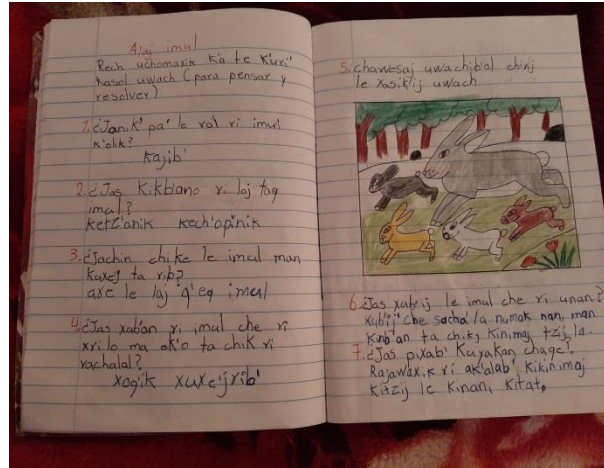 Alaj imul
Rech uchomaxik k'a te k'uri'
kasol uwach (para pensar y
resolver)
1. ¿Janik' pa' le ral ri imul
k'olik?
kajib'
2. ¿Jas kikb'ano ri laj taq
imul?
ketz'anik kech'opinik
3. ¿Jachin chike le imul man
kuxej ta rib?
are le laj q'eq imul
4. ¿Jas xub'an ri imul che ri
xrilo ma ok'o ta chik ri
rachalal?
xoq'ik xuxe'jrib'
5. chawesaj uwachib'al chirij
le xasik'ij uwach
6. ¿Jas xub'ij le imul che ri unan?
xub'ij' che sacha'la numak nan, man
kinb'an ta chik, kinimaj tzij la.
7. ¿Jas pixab' kuyakan chaqe?
Rajawaxik ri ak'alab' kikinimaj
kitzij le kinan, kitat.